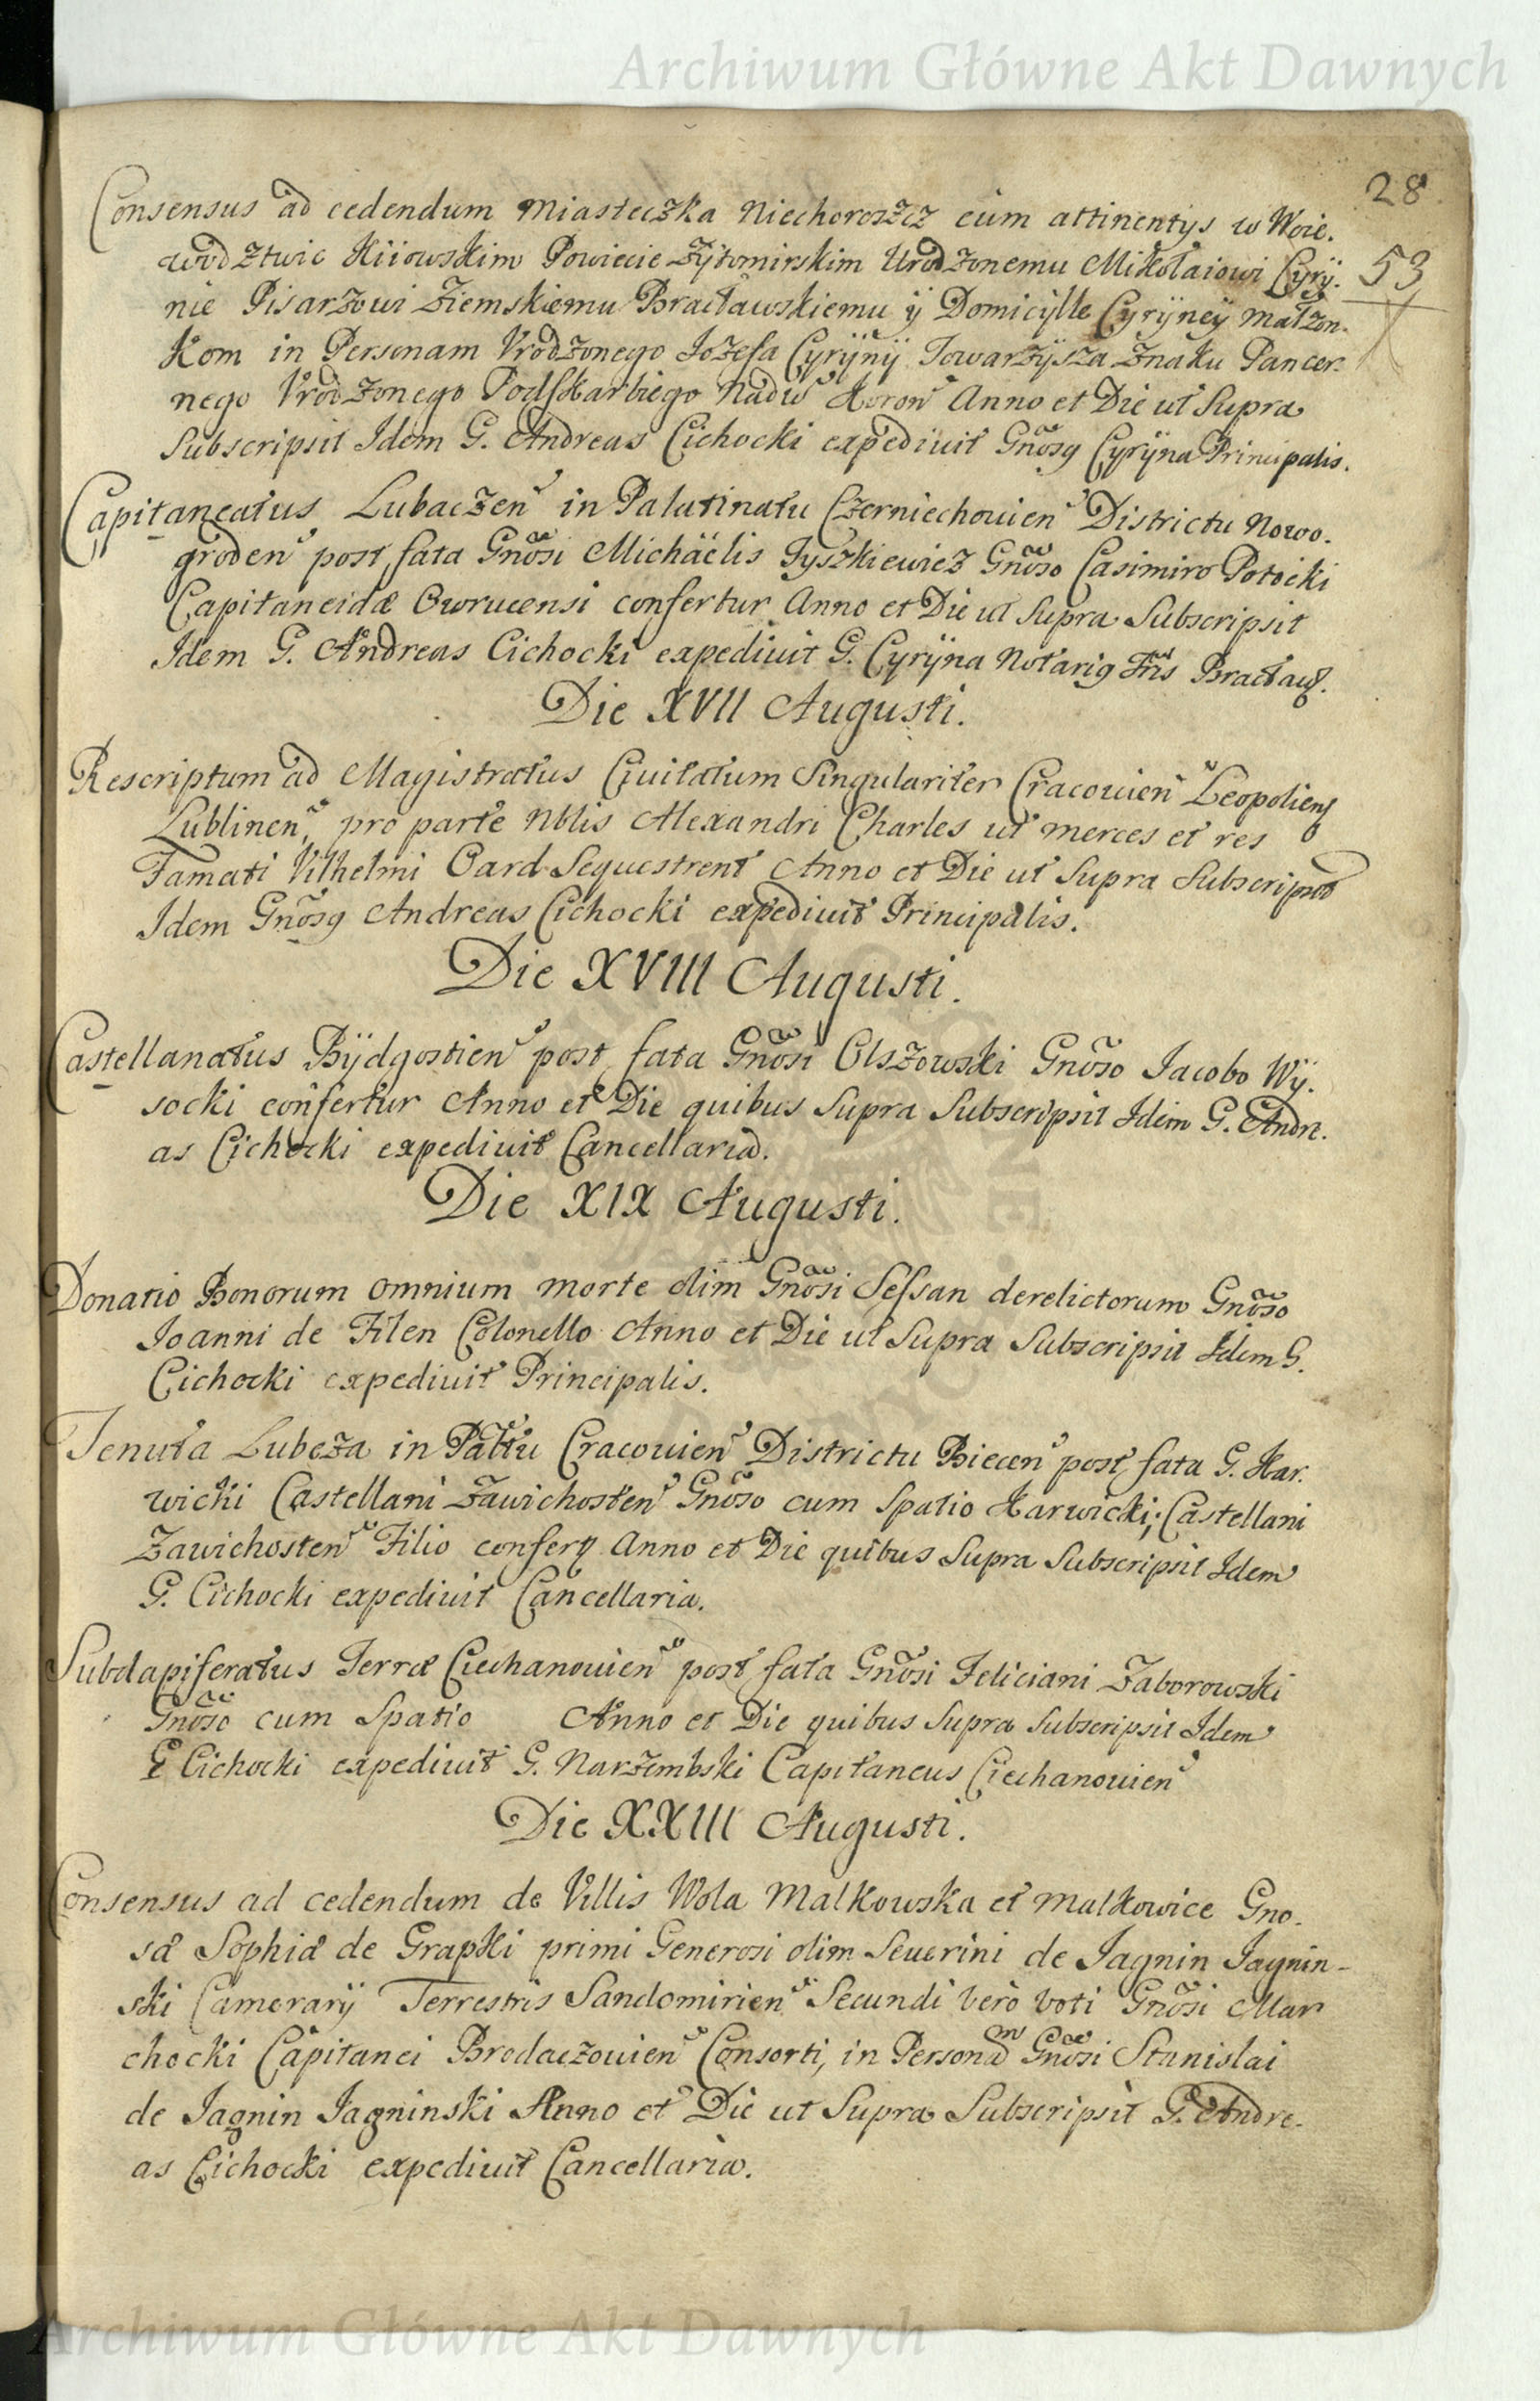 Archiwum Główne Akt Dawnych
28
53
Consensus ad cedendum Miasteczka Niechoroszcz cum attinentÿs w Woie.
wodztwie Kiiowskim Powiecie Zÿtomirskim Urodzonemu Mikołaiowi Cyrÿ.
nie Pisarzowi Ziemskiemu Bracławskiemu ÿ Domicÿlle Cyrÿneÿ Małzon.
kom in Personam Vrodzonego Iozefa Cyrÿnÿ Towarzÿsza Znaku Pancer.
nego Vrodzonego Podskarbiego Nadw Koron Anno et Die ut Supra
Subscripsit Idem G. Andreas Cichocki expediuit Gnosg Cyrÿna Principalis.
Capitaneatus Lubaczen in Palatinatu Czerniechouien Districtu Nowo.
groden post fata Gnosi Michaëlis Tyszkiewicz Gnoso Casimiro Potocki
Capitaneidæ Owrucensi confertur Anno et Die ut Supra Subscripsit
Idem G. Andreas Cichocki expediuit G. Cyrÿna Notarig Tris Bracław.
Die XVII Augusti.
Rescriptum ad Magistratus Ciuitatum Singulariter Cracouien Leopoliens
Lublinen, pro parte Nblis Alexandri Charles ut merces et res
Famati Vilhelmi Oard Sequestrent Anno et Die ut Supra Subscripsit
Idem Gnosg Andreas Cichocki expediuit Principalis.
Die XVIII Augusti.
Castellanatus Bÿdgostien post fata Gnosi Olszowski Gnoso Iacobo Wÿ.
socki confertur Anno et Die quibus Supra Subscripsit Idem G. Andre.
as Cichocki expediuit Cancellaria.
Die XIX Augusti.
Donatio Bonorum omnium morte olim Gnosi Sessan derelictorum Gnoso
Ioanni de Filen Colonello Anno et Die ut Supra Subscripsit Idem G.
Cichocki expediuit Principalis.
Tenuta Lubcza in Pattu Cracouien Districtu Biecen post fata G. Kar.
wicki Castellani Zawichosten Gnoso cum Spatio Karwicki; Castellani
Zawichosten Filio confery Anno et Die quibus Supra Subscripsit Idem
G. Cichocki expediuit Cancellaria.
Subdapiferatus Terræ Ciechanouien post fata Gnosi Feliciani Zaborowski
Gnoso cum Spatio Anno et Die quibus Supra Subscripsit Idem
G Cichocki expediuit G. Narzembski Capitaneus Ciechanouien
Die XXIII Augusti.
Consensus ad cedendum de Villis Wola Malkowska et Malkowice Gno.
sæ Sophiæ de Grapki primi Generosi olim Seuerini de Jagnin Jagnin-
ski Camerarÿ Terrestris Sandomirien Secundi verò voti Gnosi Mar
chocki Capitanei Brodaczouien Consorti, in Personam Gnosi Stanislai
de Jagnin Jagninski Anno et Die ut Supra Subscripsit G. Andre.
as Cichocki expediuit Cancellaria.
Archiwum Główne Akt Dawnych